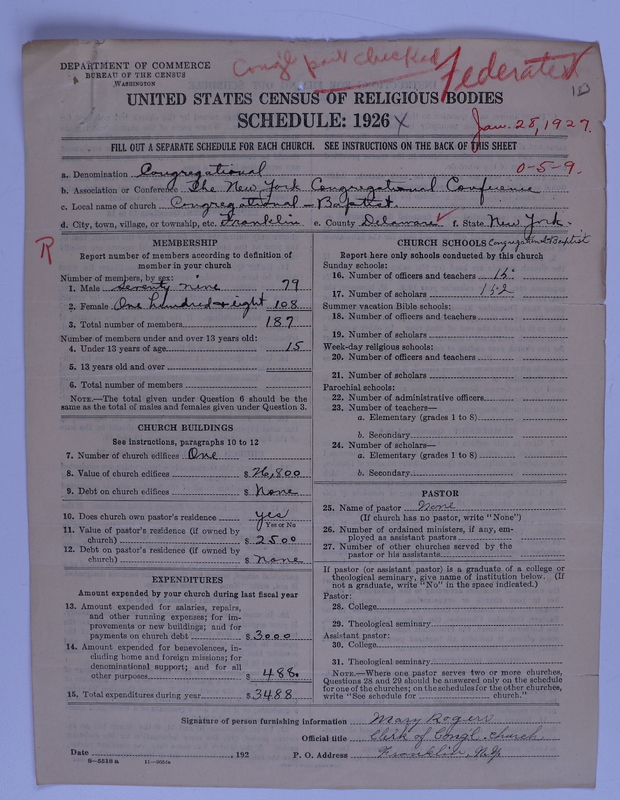 Cong'l part checked
Federated
DEPARTMENT OF COMMERCE
BUREAU OF THE CENSUS
WASHINGTON
UNITED STATES CENSUS OF RELIGIOUS BODIES
SCHEDULE: 1926 X
Jan. 28, 1927.
FILL OUT A SEPARATE SCHEDULE FOR EACH CHURCH. SEE INSTRUCTIONS ON THE BACK OF THIS SHEET
0-5-9.
a. Denomination Congregational
b. Association or Conference The New York Congregational Conference
c. Local name of church Congregational - Baptist.
d. City, town, village, or township, etc. Franklin e. County Delaware f. State New York.
R
MEMBERSHIP
Report number of members according to definition of member in your church
Number of members, by sex:
1. Male seventy nine 79
2. Female One hundred - eight 108
3. Total number of members 187
Number of members under and over 13 years old:
4. Under 13 years of age 15
5. 13 years old and over
6. Total number of members
NOTE.—The total given under Question 6 should be the same as the total of males and females given under Question 3.
CHURCH BUILDINGS
See instructions, paragraphs 10 to 12
7. Number of church edifices One
8. Value of church edifices $ 26,800
9. Debt on church edifices $ None
10. Does church own pastor's residence yes
Yes or No
11. Value of pastor's residence (if owned by church) $ 2500
12. Debt on pastor's residence (if owned by church) $ none
EXPENDITURES
Amount expended by your church during last fiscal year
13. Amount expended for salaries, repairs, and other running expenses; for improvements or new buildings; and for payments on church debt $ 3000
14. Amount expended for benevolences, including home and foreign missions; for denominational support; and for all other purposes $ 488.
15. Total expenditures during year $ 3488
CHURCH SCHOOLS Congregational & Baptist
Report here only schools conducted by this church
Sunday schools:
16. Number of officers and teachers 15
17. Number of scholars 152
Summer vacation Bible schools:
18. Number of officers and teachers
19. Number of scholars
Week-day religious schools:
20. Number of officers and teachers
21. Number of scholars
Parochial schools:
22. Number of administrative officers
23. Number of teachers—
a. Elementary (grades 1 to 8)
b. Secondary
24. Number of scholars—
a. Elementary (grades 1 to 8)
b. Secondary
PASTOR
25. Name of pastor None
(If church has no pastor, write "None")
26. Number of ordained ministers, if any, employed as assistant pastors
27. Number of other churches served by the pastor or his assistants
If pastor (or assistant pastor) is a graduate of a college or theological seminary, give name of institution below. (If not a graduate, write "No" in the space indicated.)
Pastor:
28. College
29. Theological seminary
Assistant pastor:
30. College
31. Theological seminary
NOTE.—Where one pastor serves two or more churches, Questions 28 and 29 should be answered only on the schedule for one of the churches; on the schedules for the other churches, write "See schedule for church."
Signature of person furnishing information Mary Rogers
Official title Clerk of Congl. church
Date , 192 P. O. Address Franklin, N.Y.
8-5518 a